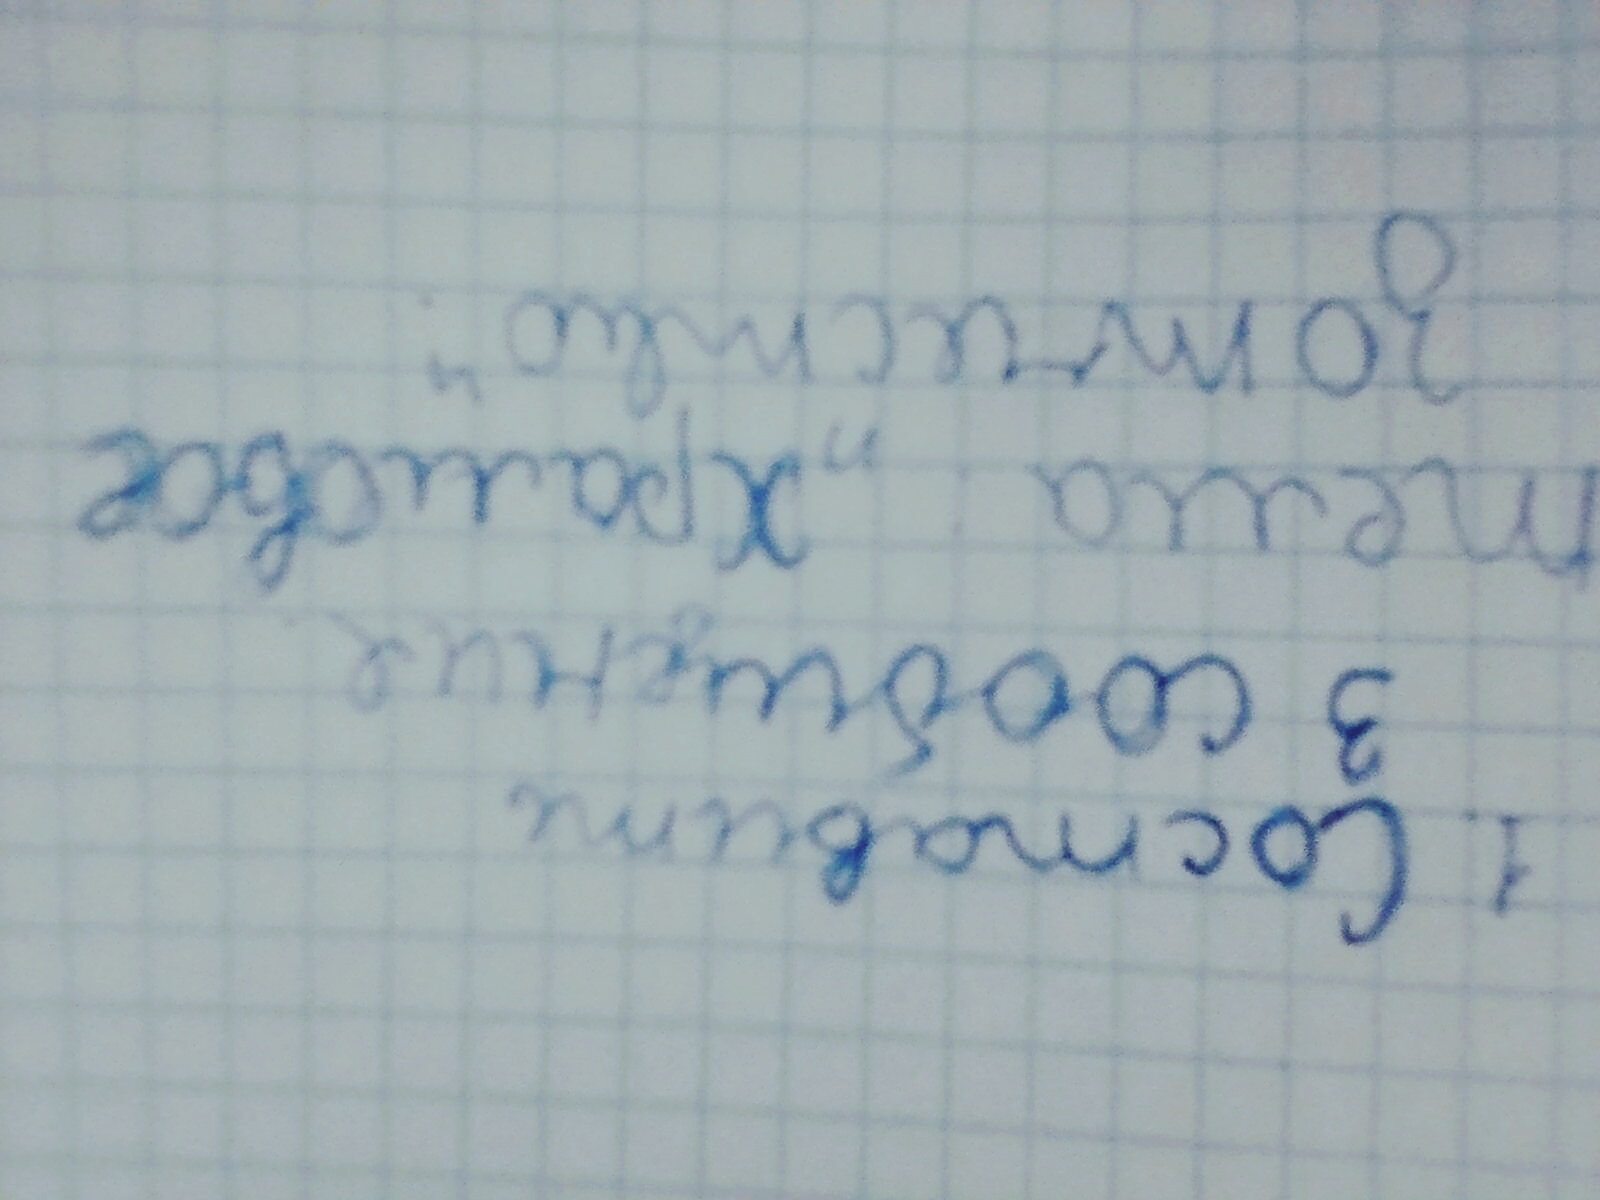 1 Составити
3 сообщение
тема "храмовое
зотчество"